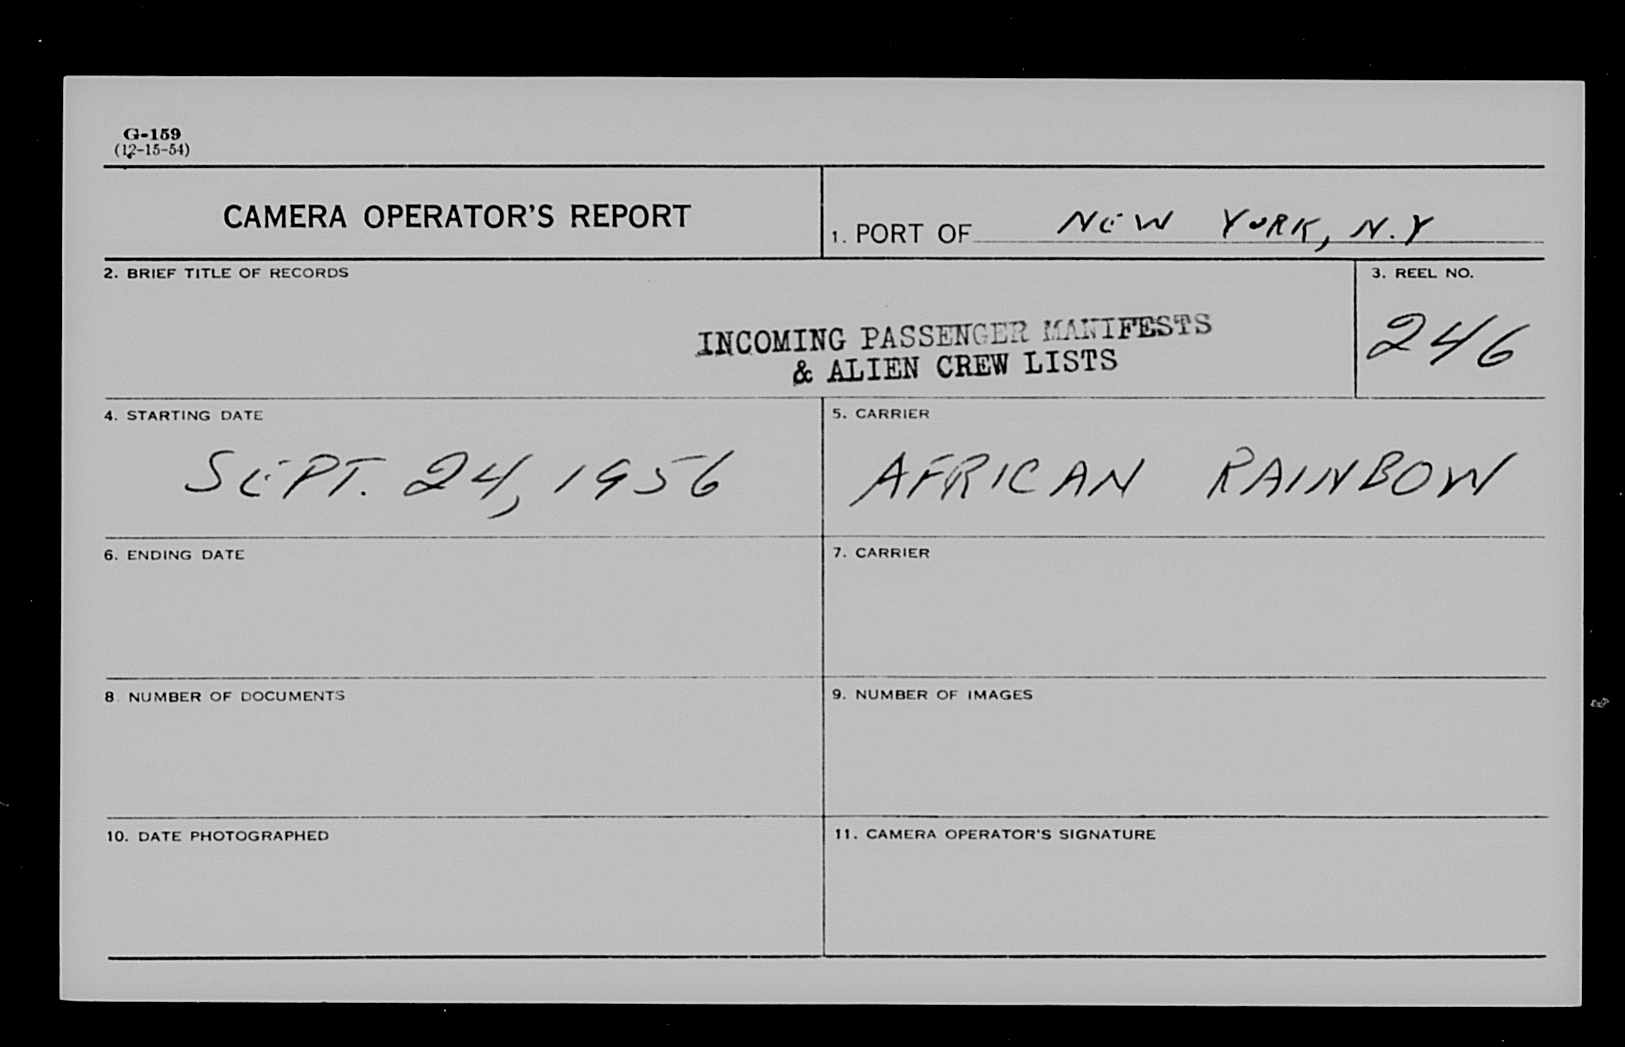 G-159
(12-15-54)
CAMERA OPERATOR'S REPORT
1. PORT OF NEW YORK, N.Y
2. BRIEF TITLE OF RECORDS
INCOMING PASSENGER MANIFESTS
& ALIEN CREW LISTS
3. REEL NO.
246
4. STARTING DATE
SEPT. 24, 1956
5. CARRIER
AFRICAN RAINBOW
6. ENDING DATE
7. CARRIER
8. NUMBER OF DOCUMENTS
9. NUMBER OF IMAGES
10. DATE PHOTOGRAPHED
11. CAMERA OPERATOR'S SIGNATURE